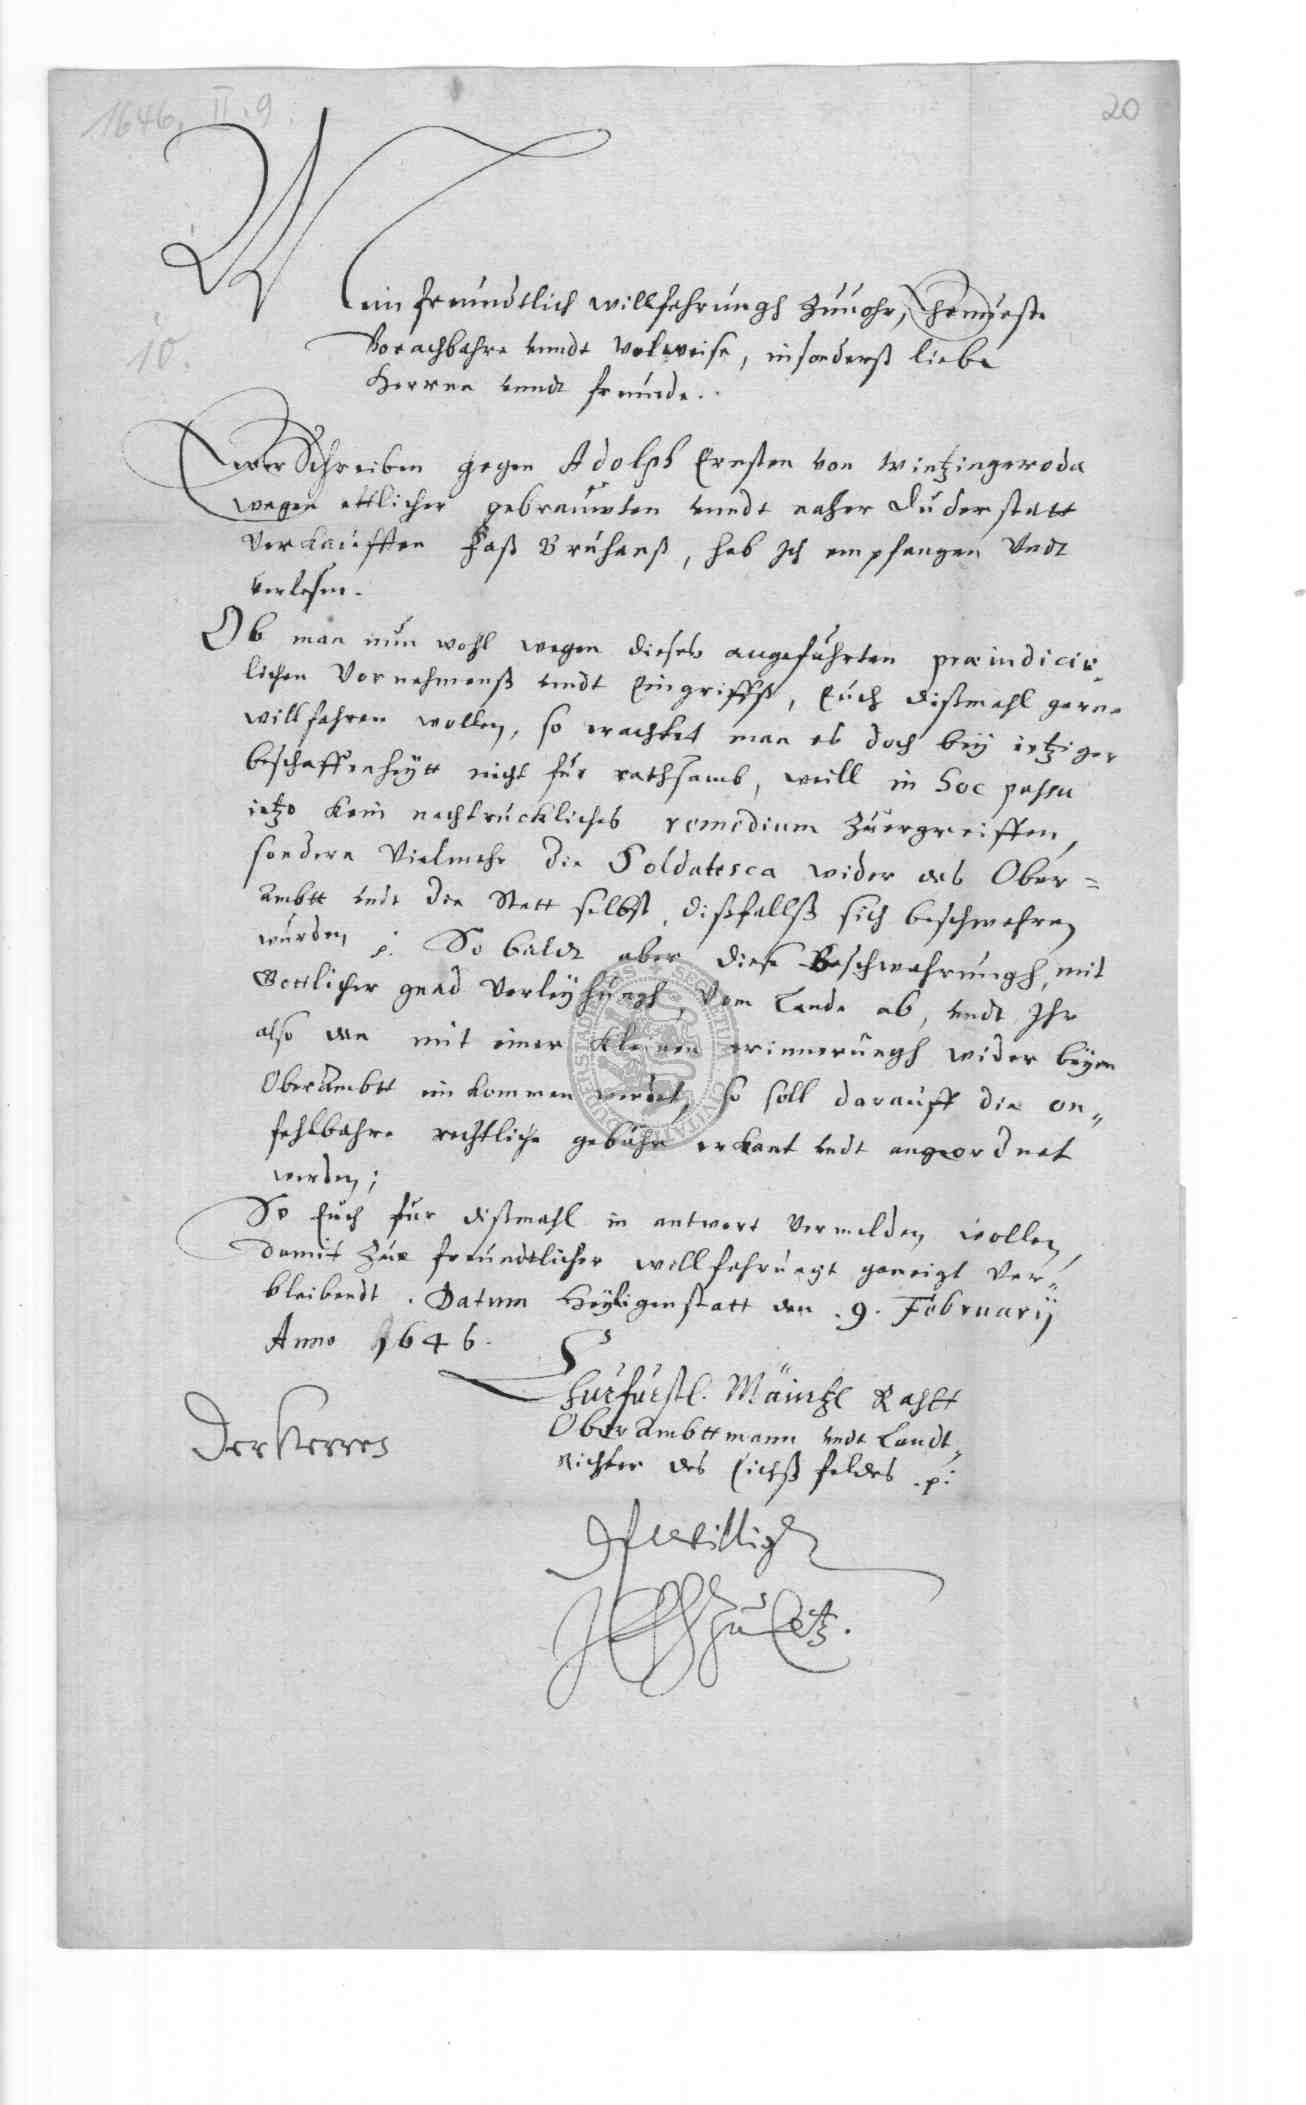 1646. II. 9.
20
10.
Mein freundtlich willfehrungh zuuohr, Ehrnueste
Vorachbahre unndt Wolweise, insonderß liebe
Herren unndt freunde.
Ewer Schreiben gegen Adolph Ernsten von Wintzingeroda
wegen ettlicher gebrauwten unndt naher Duderstatt
Verkaufften Faß Bruhanß, hab Ich empfangen Undt
verlesen.
Ob man nun wohl wegen dieses angefuhrten præiudicir-
lichen Vornehmenß undt Eingriffß, Euch dißmahl gerne
willfahren wollen, so erachtet man es doch bey ietziger
beschaffenheytt nicht fur rathsamb, weill in hoc passu
ietzo kein nachtruckliches remedium zuergreiffen,
sondern Vielmehr die Soldatesca wider das Ober=
Ambtt undt die Statt selbst dißfallß sich beschwehren
wurden p: So baldt aber diese Beschwehrungh, mit
Gottlicher gnad Verleyhungh vom Lande ab, undt Ihr
also dan mit einer kleinen erinnerungh wider beym
OberAmbtt einkommen werdet, so soll darauff die on-
fehlbahre rechtliche gebuhr erkant undt angeordnet
werden;
So Euch fur dißmahl in antwort Vermelden wollen,
damit zue freundtlicher willfehrungh geneigt Ver-
bleibendt. Datum Heyligenstatt den .9. February
Anno 1646.
Churfurstl. Mäintzl Rahtt
OberAmbttmann undt Landt-
Richter des Eichßfeldes .p:
Der Herren
dstwilliger